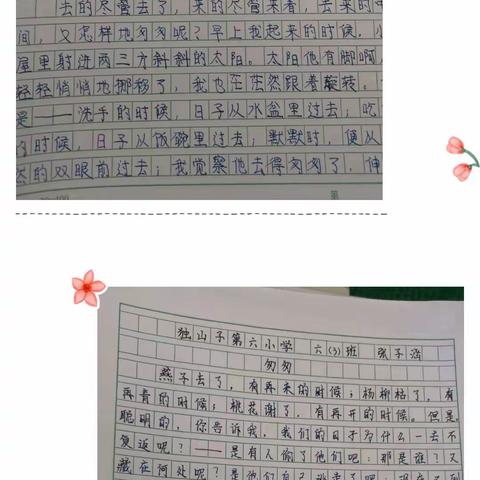 去的尽管去了，来的尽管来着，去来的中
间，又怎样地匆匆呢？早上我起来的时候，小
屋里射进两三方斜斜的太阳。太阳他有脚啊，
轻轻悄悄地挪移了，我也茫茫然跟着旋转。
是——洗手的时候，日子从水盆里过去；吃
的时候，日子从饭碗里过去；默默时，便从
然的双眼前过去；我觉察他去得匆匆了，伸
第
独山子第六小学 六(3)班
匆匆
燕子去了，有再来的时候；杨柳枯了，有
再青的时候；桃花谢了，有再开的时候。但是，
聪明的，你告诉我，我们的日子为什么一去不
复返呢？——是有人偷了他们吧：那是谁？又
藏在何处呢？是他们自己逃走了吧：现在又到